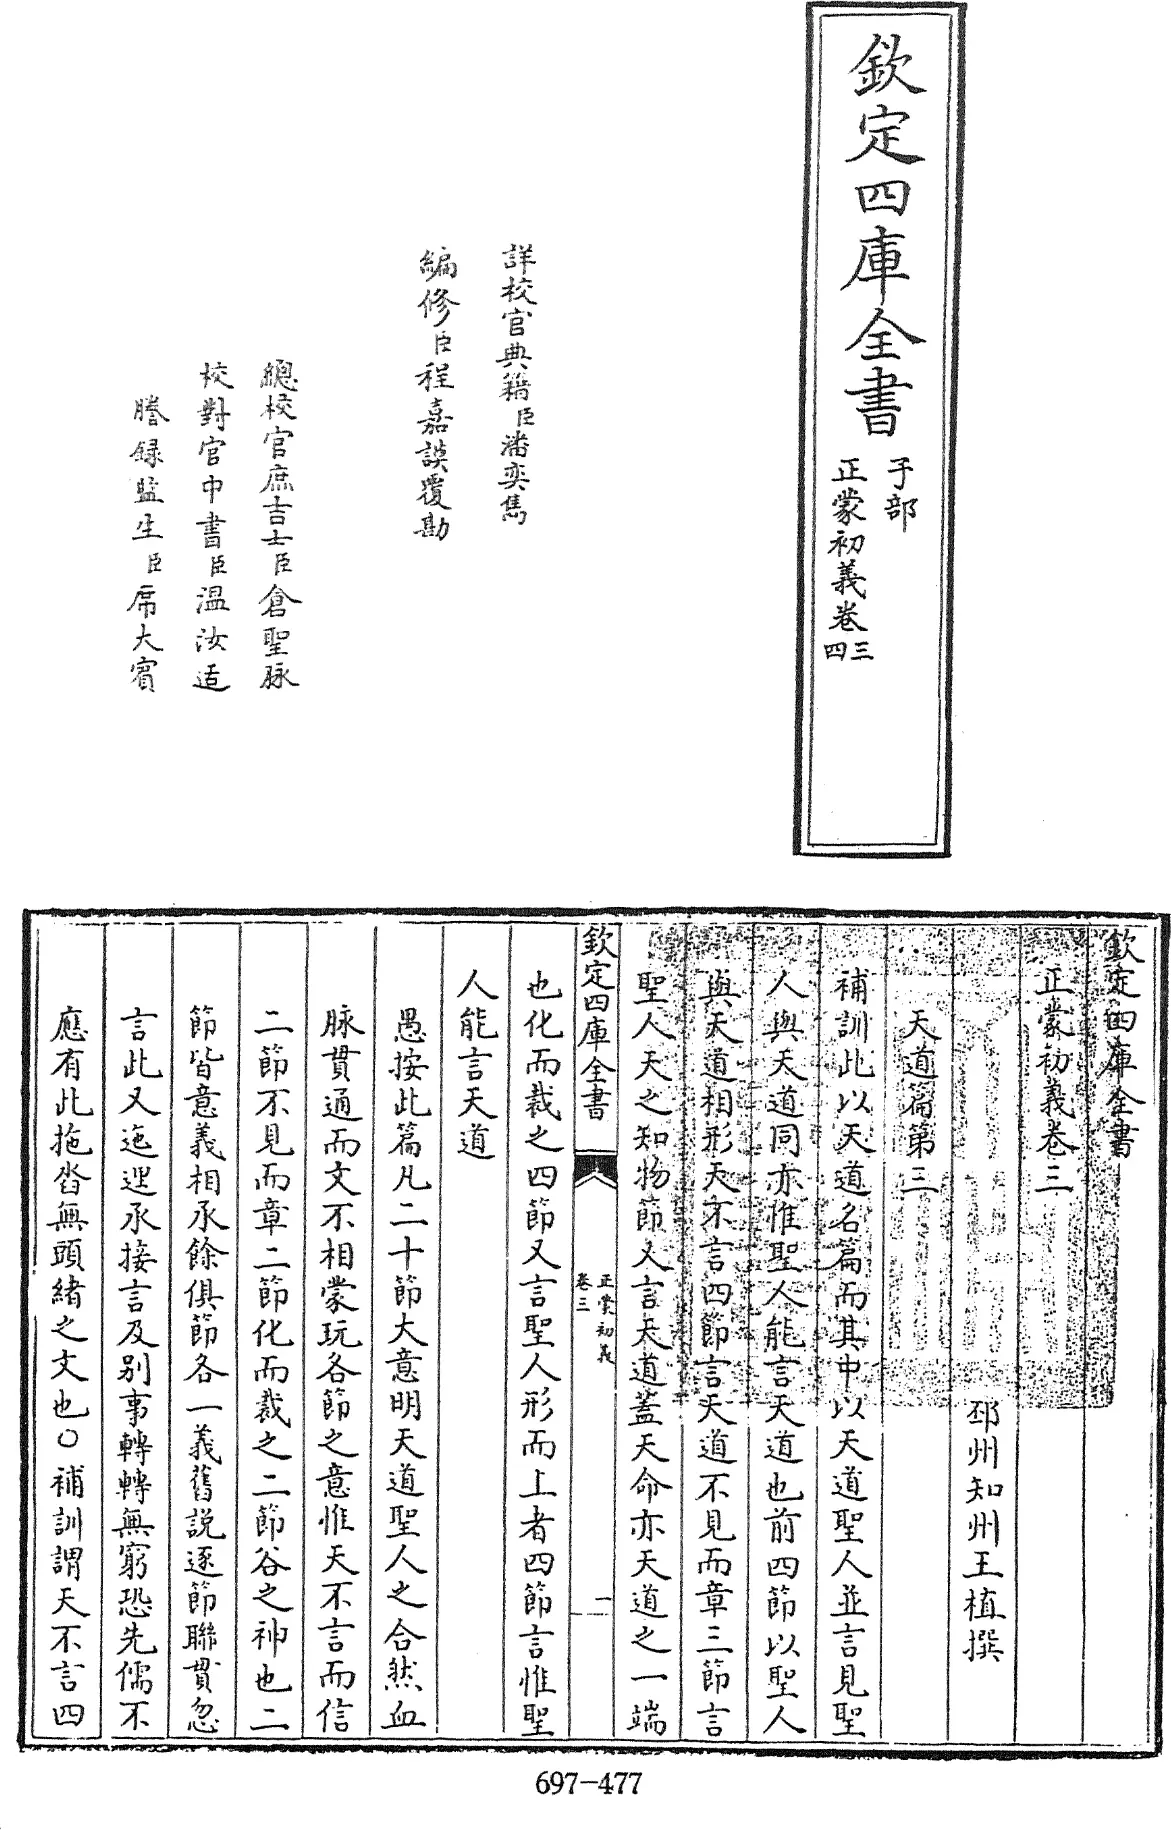 欽定四庫全書
子部
正蒙初義卷三四
詳校官典籍臣潘奕雋
編修臣程嘉謨覆勘
總校官庶吉士臣倉聖脉
校對官中書臣温汝适
謄録監生臣席大賓
欽定四庫全書
正蒙初義卷三
邳州知州王植撰
天道篇第三
補訓此以天道名篇而其中以天道聖人並言見聖
人與天道同亦惟聖人能言天道也前四節以聖人
與天道相形天不言四節言天道不見而章三節言
聖人天之知物節又言天道蓋天命亦天道之一端
欽定四庫全書
正蒙初義
卷三
一
也化而裁之四節又言聖人形而上者四節言惟聖
人能言天道
愚按此篇凡二十節大意明天道聖人之合然血
脉貫通而文不相蒙玩各節之意惟天不言而信
二節不見而章二節化而裁之二節谷之神也二
節皆意義相承餘俱節各一義舊説逐節聯貫忽
言此又迤逦承接言及别事轉轉無窮恐先儒不
應有此拖沓無頭緒之文也○補訓謂天不言四
697-477